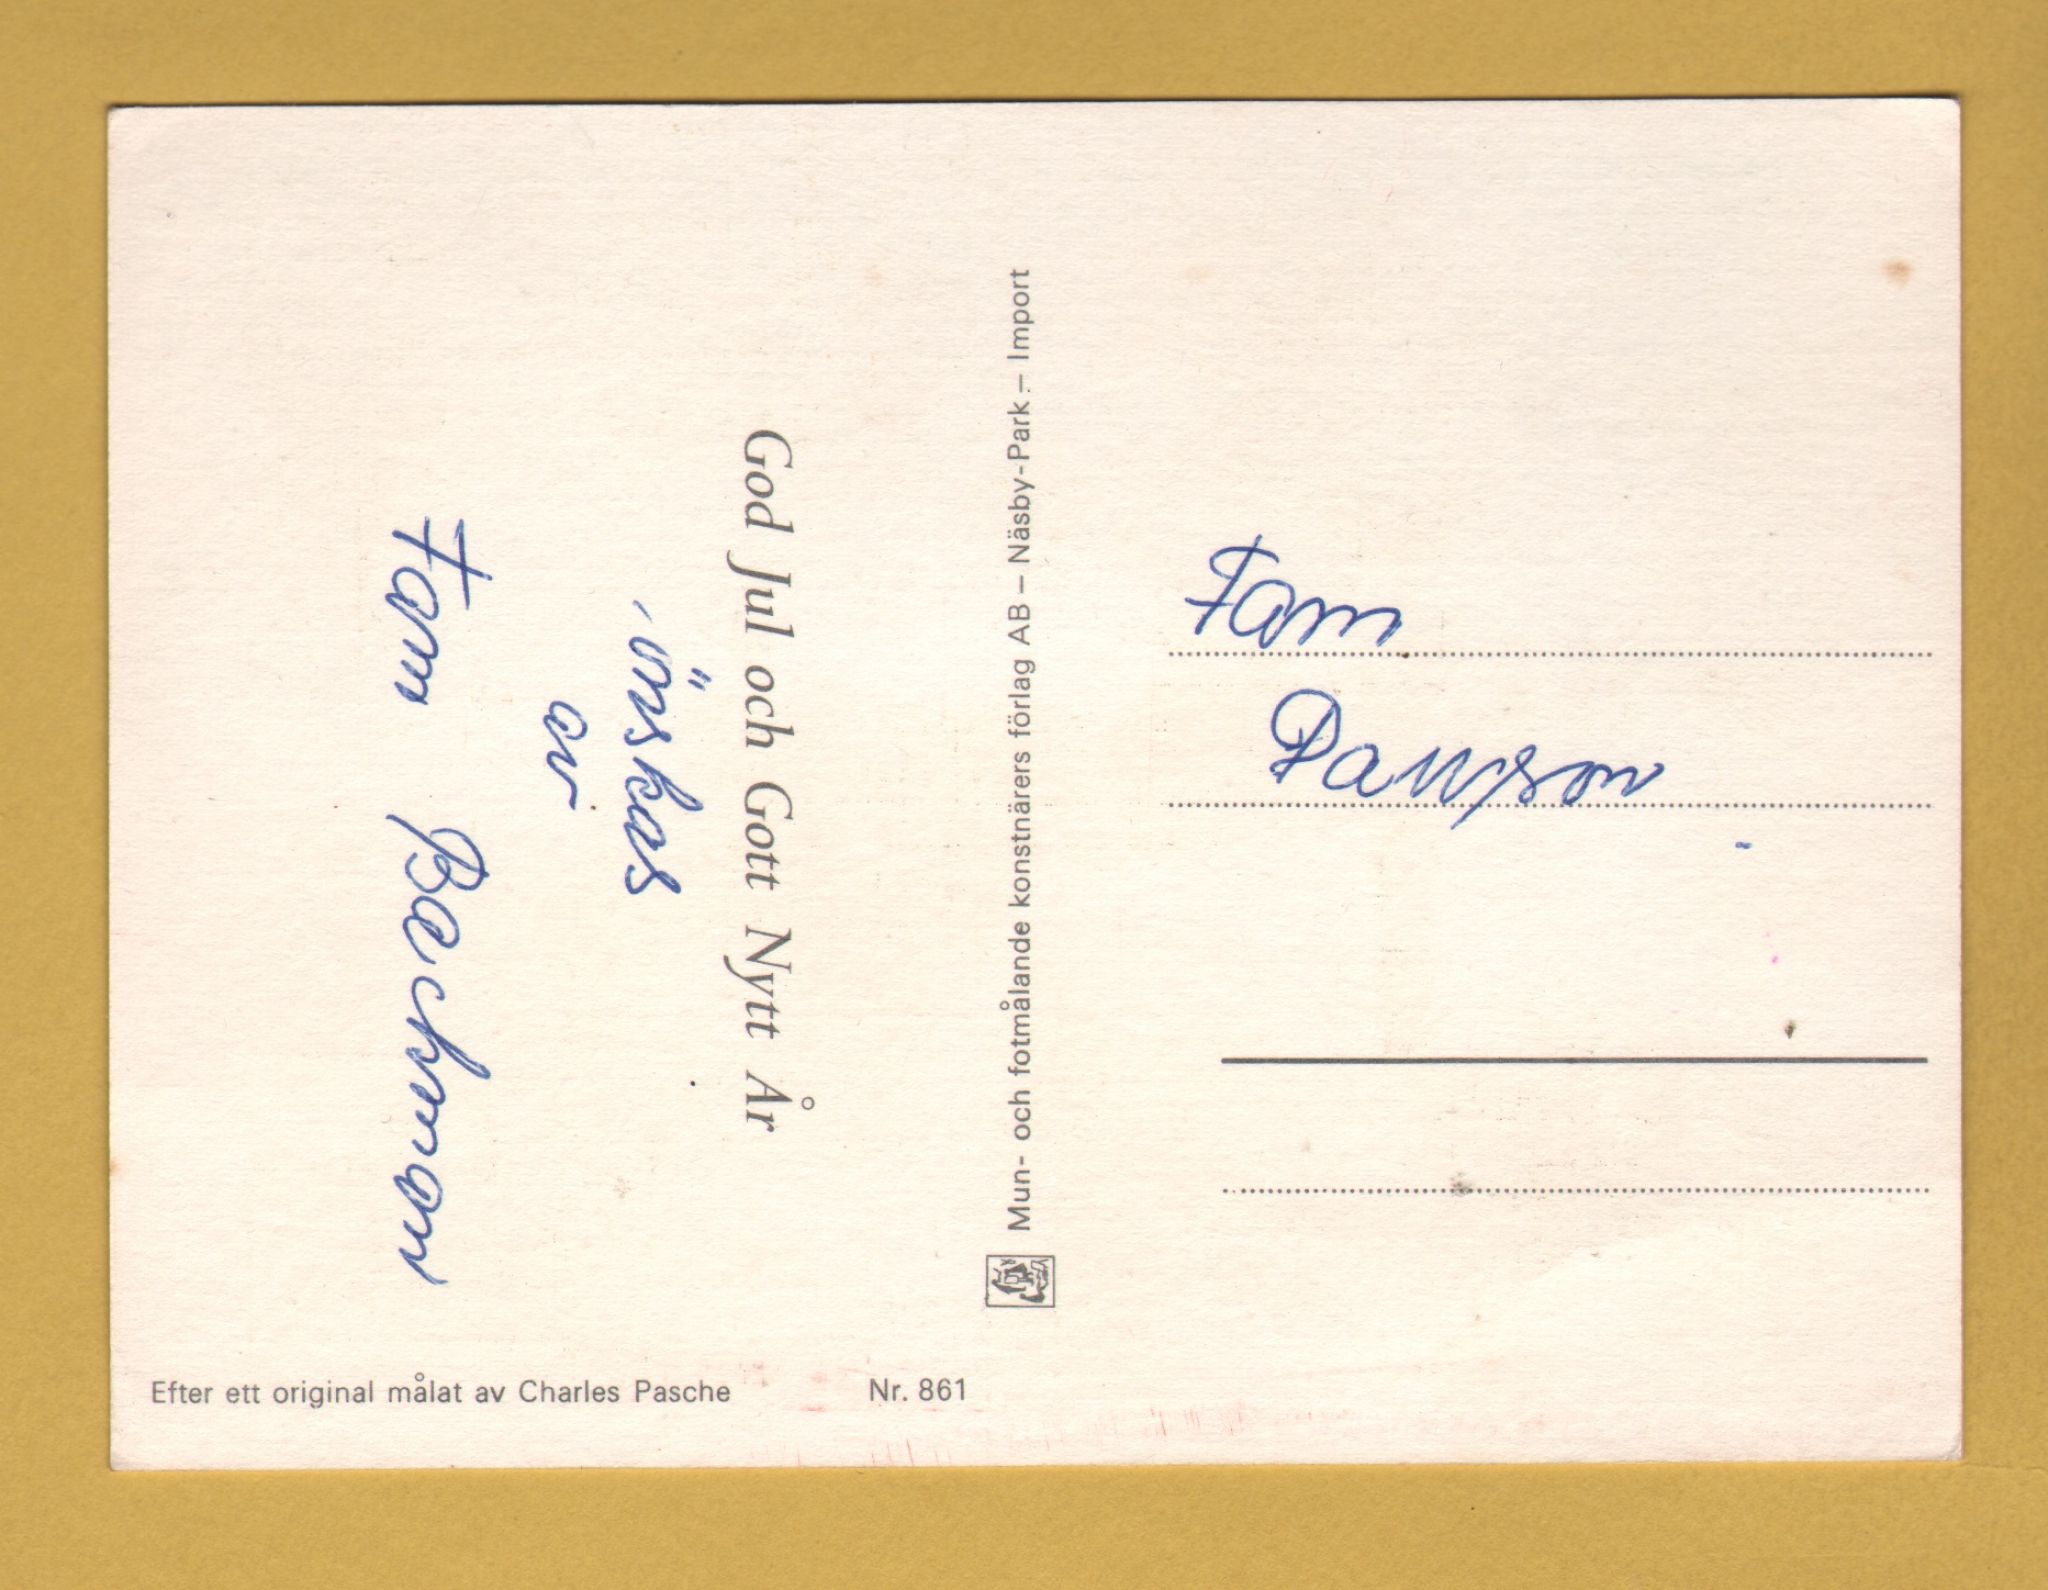 God Jul och Gott Nytt År
önskas
av
Fam Bachman
Efter ett original målat av Charles Pasche
Nr. 861
Mun- och fotmålande konstnärers förlag AB – Näsby-Park – Import
Fam
Dawson